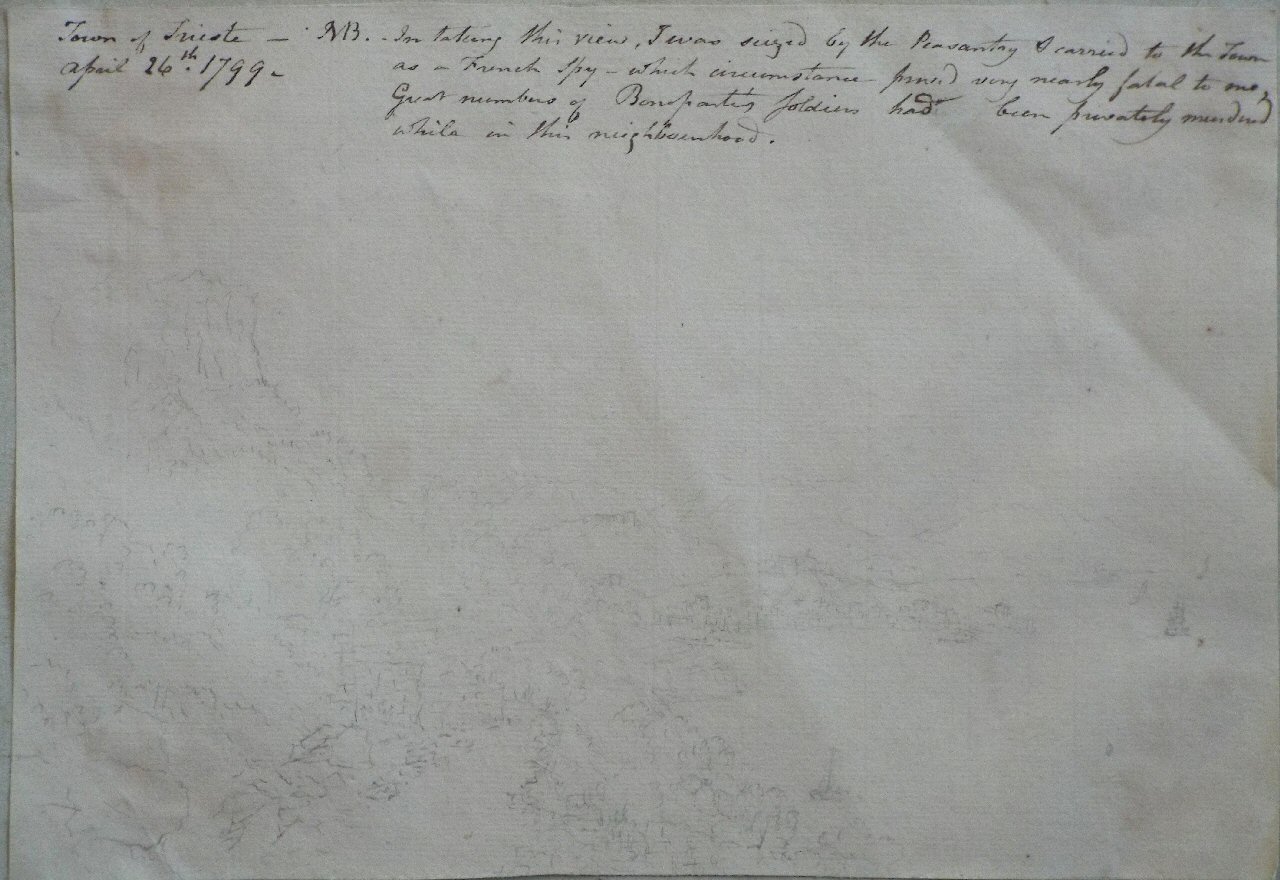 Town of Trieste — NB. - In taking this view, I was seized by the Peasantry & carried to the Town
april 26th. 1799 - as a French Spy - which circumstance prov'd very nearly fatal to me,
Great numbers of Boneparte's Soldiers had been privately murdered
while in this neighbourhood.